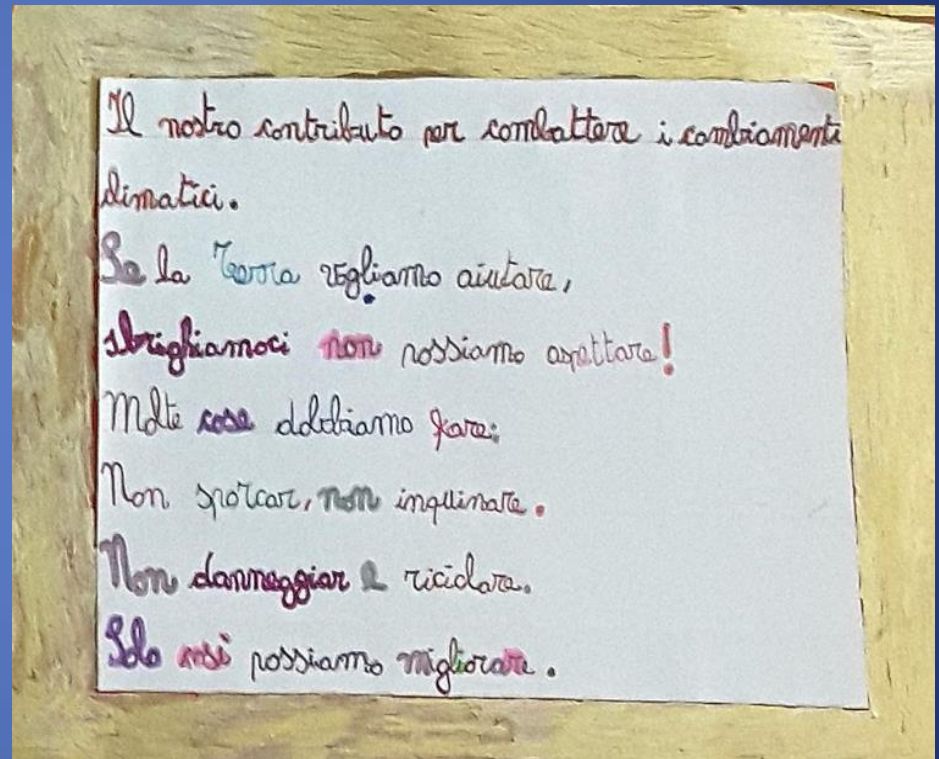 Il nostro contributo per combattere i cambiamenti
climatici.
Se la Terra vogliamo aiutare,
sbrighiamoci non possiamo aspettare!
Molte cose dobbiamo fare:
Non sporcar, non inquinare.
Non danneggiar e riciclare.
Solo così possiamo migliorare.